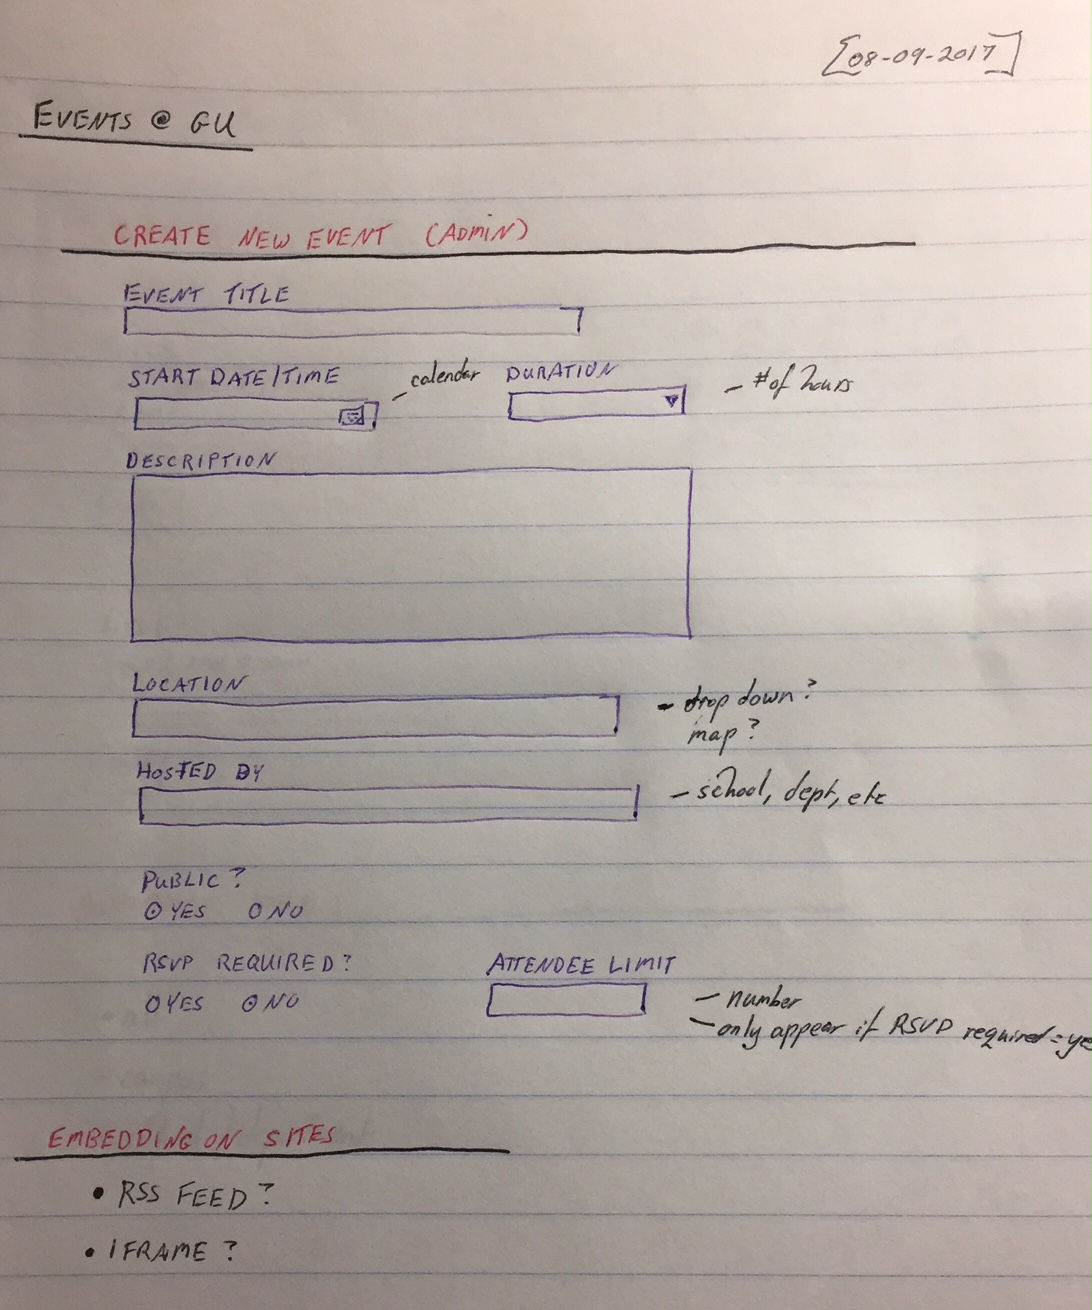 [08-09-2017]
EVENTS @ GU
CREATE NEW EVENT (ADMIN)
EVENT TITLE
START DATE/TIME
- calendar
DURATION
- # of hours
DESCRIPTION
LOCATION
- drop down?
map?
HOSTED BY
- school, dept, etc
PUBLIC?
YES NO
RSVP REQUIRED?
YES NO
ATTENDEE LIMIT
- number
- only appear if RSVP required = ye
EMBEDDING ON SITES
• RSS FEED?
• IFRAME?